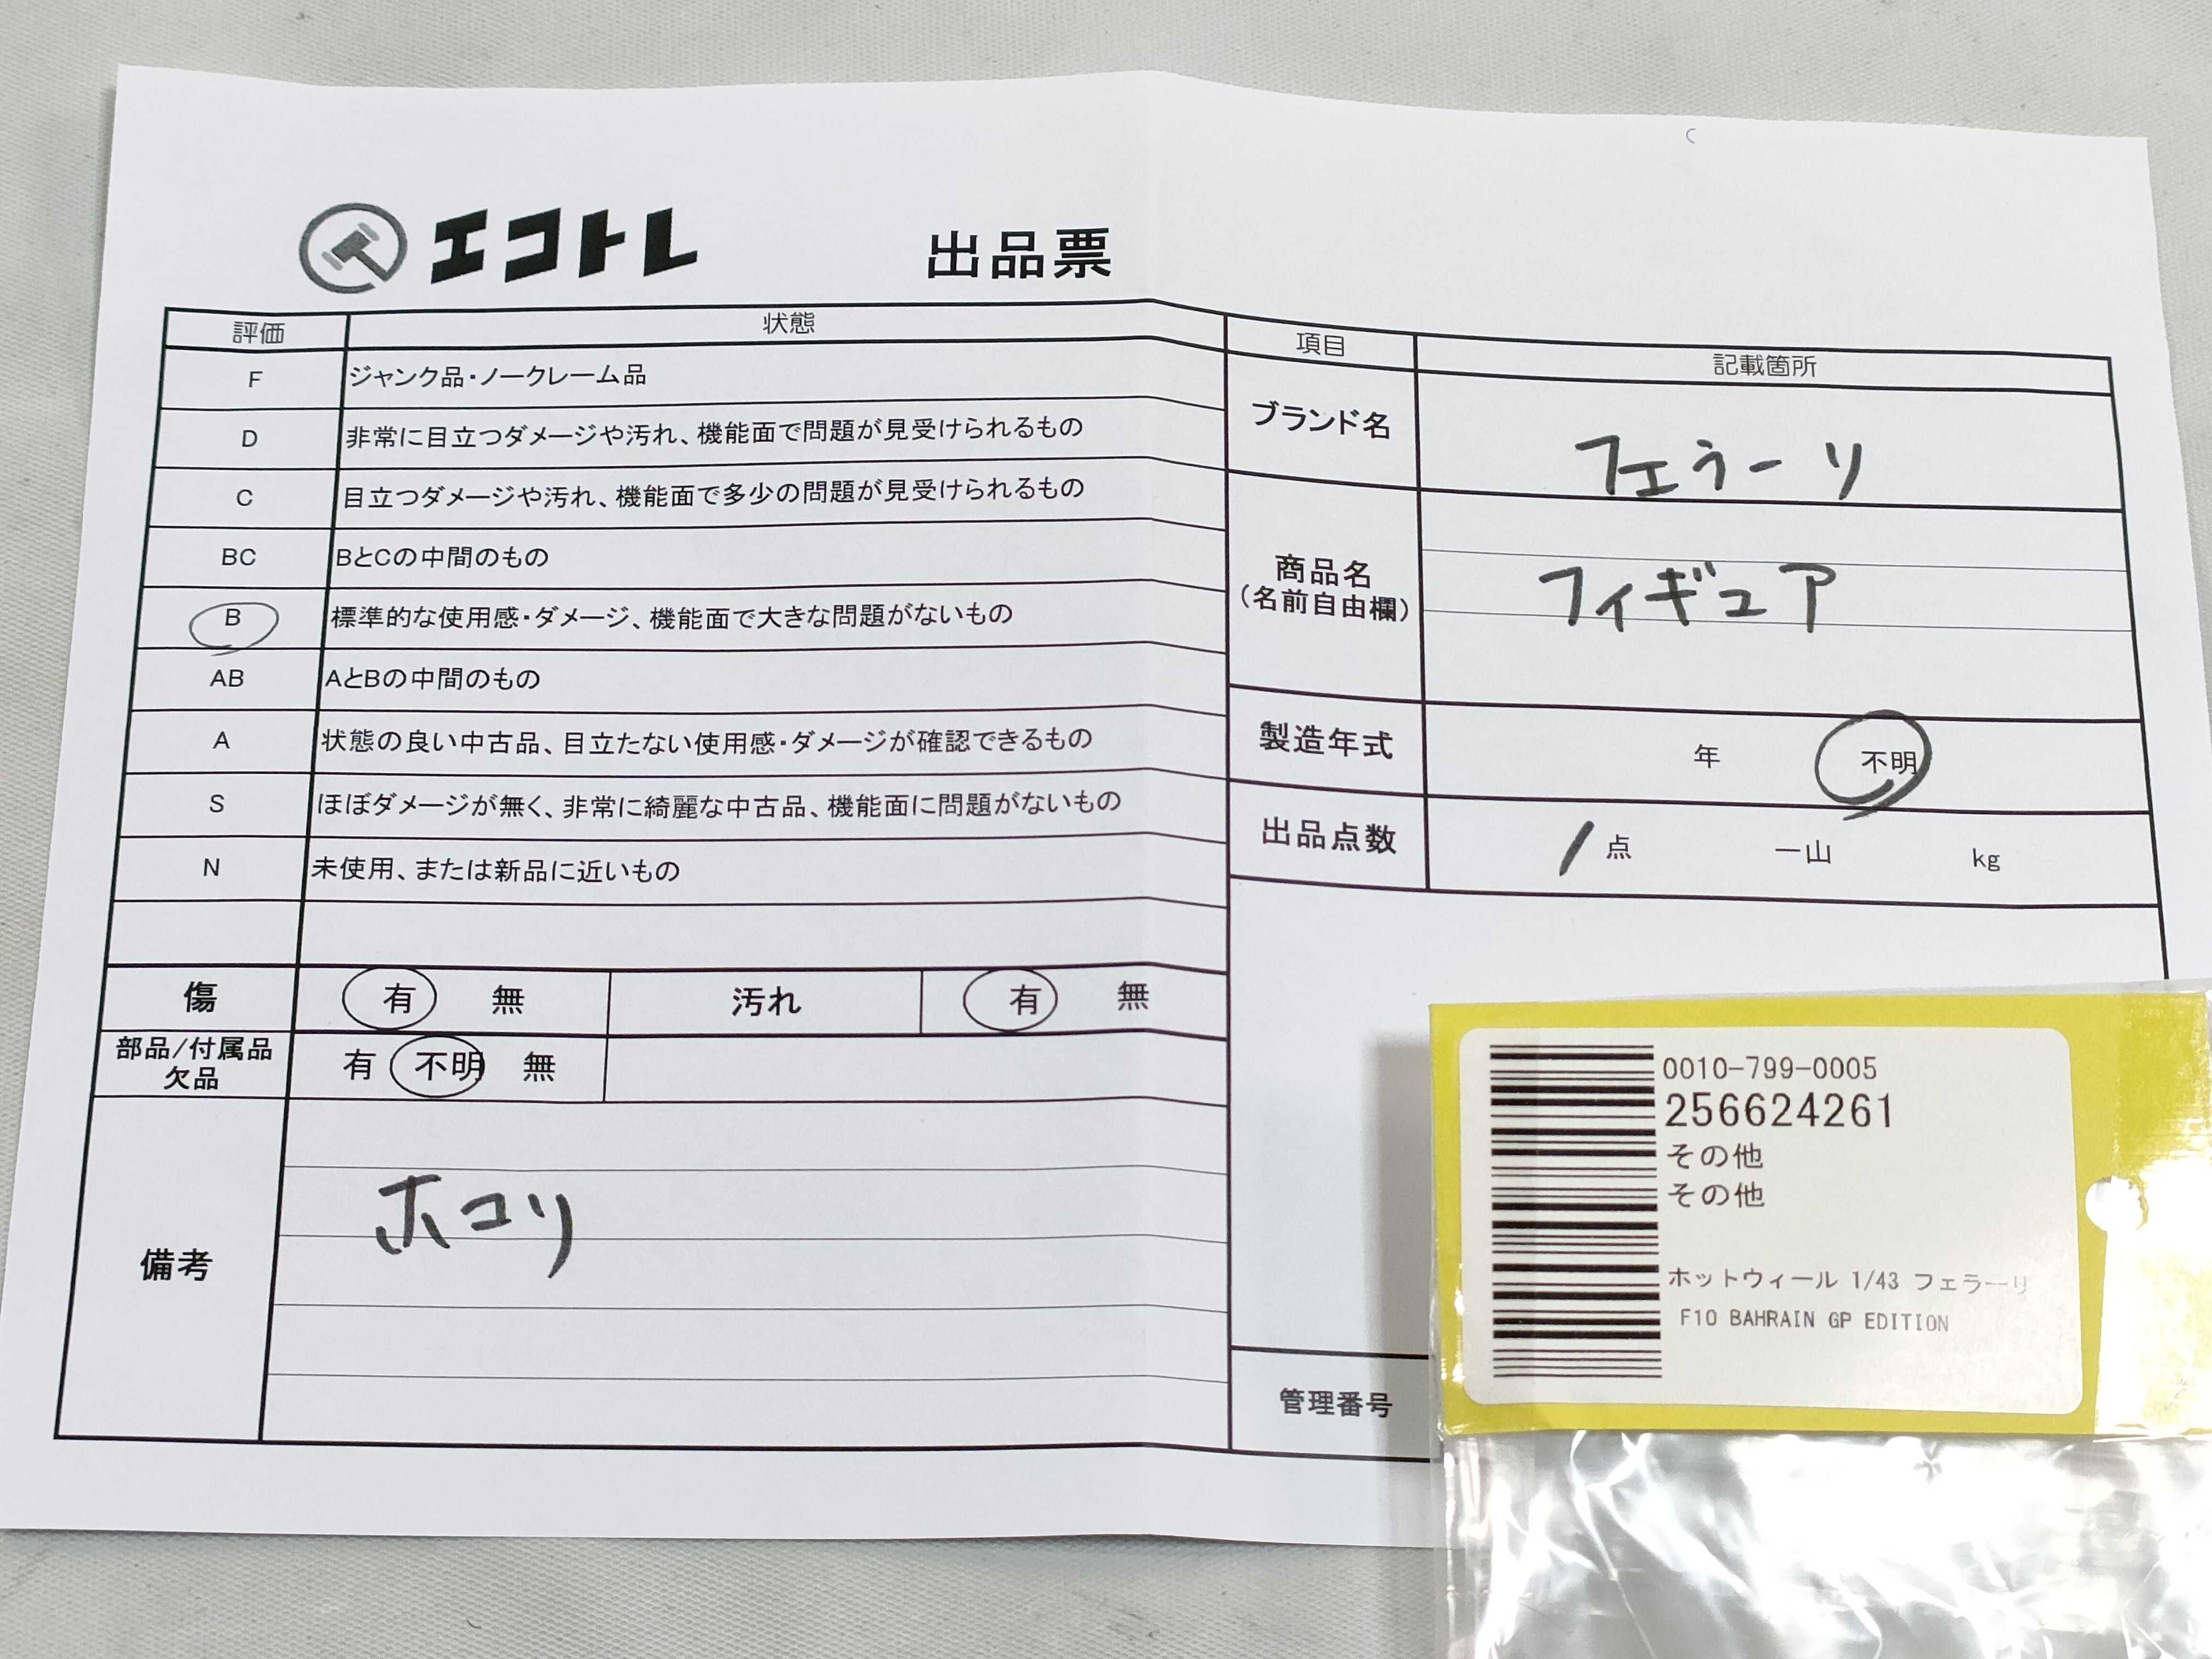 エコトレ 出品票
評価 状態
F ジャンク品・ノークレーム品
D 非常に目立つダメージや汚れ、機能面で問題が見受けられるもの
C 目立つダメージや汚れ、機能面で多少の問題が見受けられるもの
BC BとCの中間のもの
B 標準的な使用感・ダメージ、機能面で大きな問題がないもの
AB AとBの中間のもの
A 状態の良い中古品、目立たない使用感・ダメージが確認できるもの
S ほぼダメージが無く、非常に綺麗な中古品、機能面に問題がないもの
N 未使用、または新品に近いもの
傷 有 無 汚れ 有 無
部品/付属品
欠品
有 不明 無
備考 ホコリ
項目 記載箇所
ブランド名 フェラーリ
商品名
(名前自由欄)
フィギュア
製造年式 年 不明
出品点数 1 点 一山 kg
管理番号
0010-799-0005
256624261
その他
その他
ホットウィール 1/43 フェラーリ
F10 BAHRAIN GP EDITION